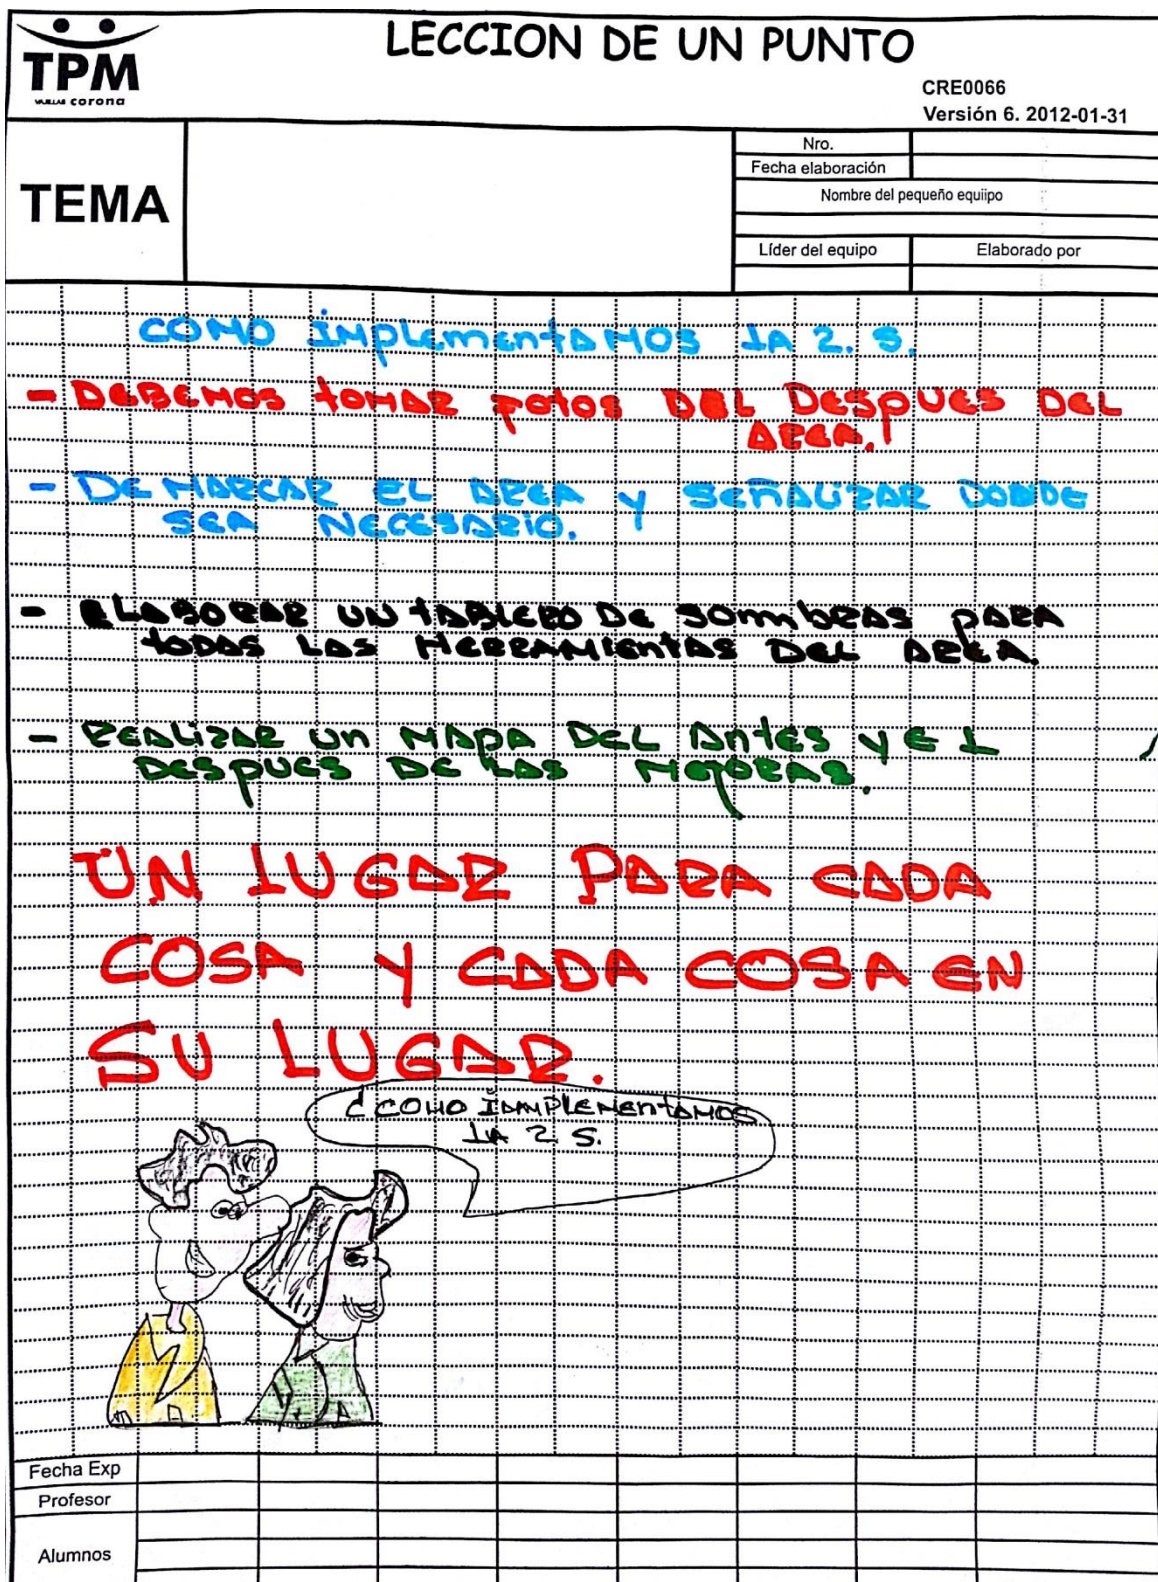 TPM
VAJILLAS corona
LECCION DE UN PUNTO
CRE0066
Versión 6. 2012-01-31
TEMA
Nro.
Fecha elaboración
Nombre del pequeño equiipo
Líder del equipo
Elaborado por
COMO implementAMOS LA 2. S.
- DEBEMOS tomar fotos DEL DESPUES DEL
AREA.
- DE MARCAR EL AREA y SEÑALIZAR DONDE
SEA NECESARIO.
- ELABORAR UN tABLERO DE sombras pARA
todas LAS HERRAMIENtAS DEL AREA.
- REALIZAR un MAPA DEL Antes y EL
DESPUES DE LAS MEJORAS.
UN LUGAR PARA CADA
COSA Y CADA COSA EN
SU LUGAR.
¿COMO IAMPLEMENtAMOS
LA 2 S.
Fecha Exp
Profesor
Alumnos